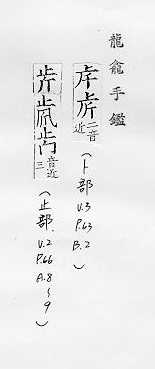 龍龕手鑑
二音
近
(卜部 V.3 P.63 B.2)
音近
三
(止部, V.2 P.66 A.8~9)